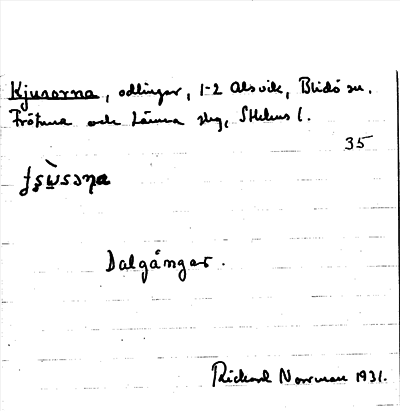 Kjusorna, odlingar, 1-2 Alsvik, Blidö sn.
Frötuna och Länna slg, Sthlms l.
35
Dalgångar.
Rickard Norrman 1931.